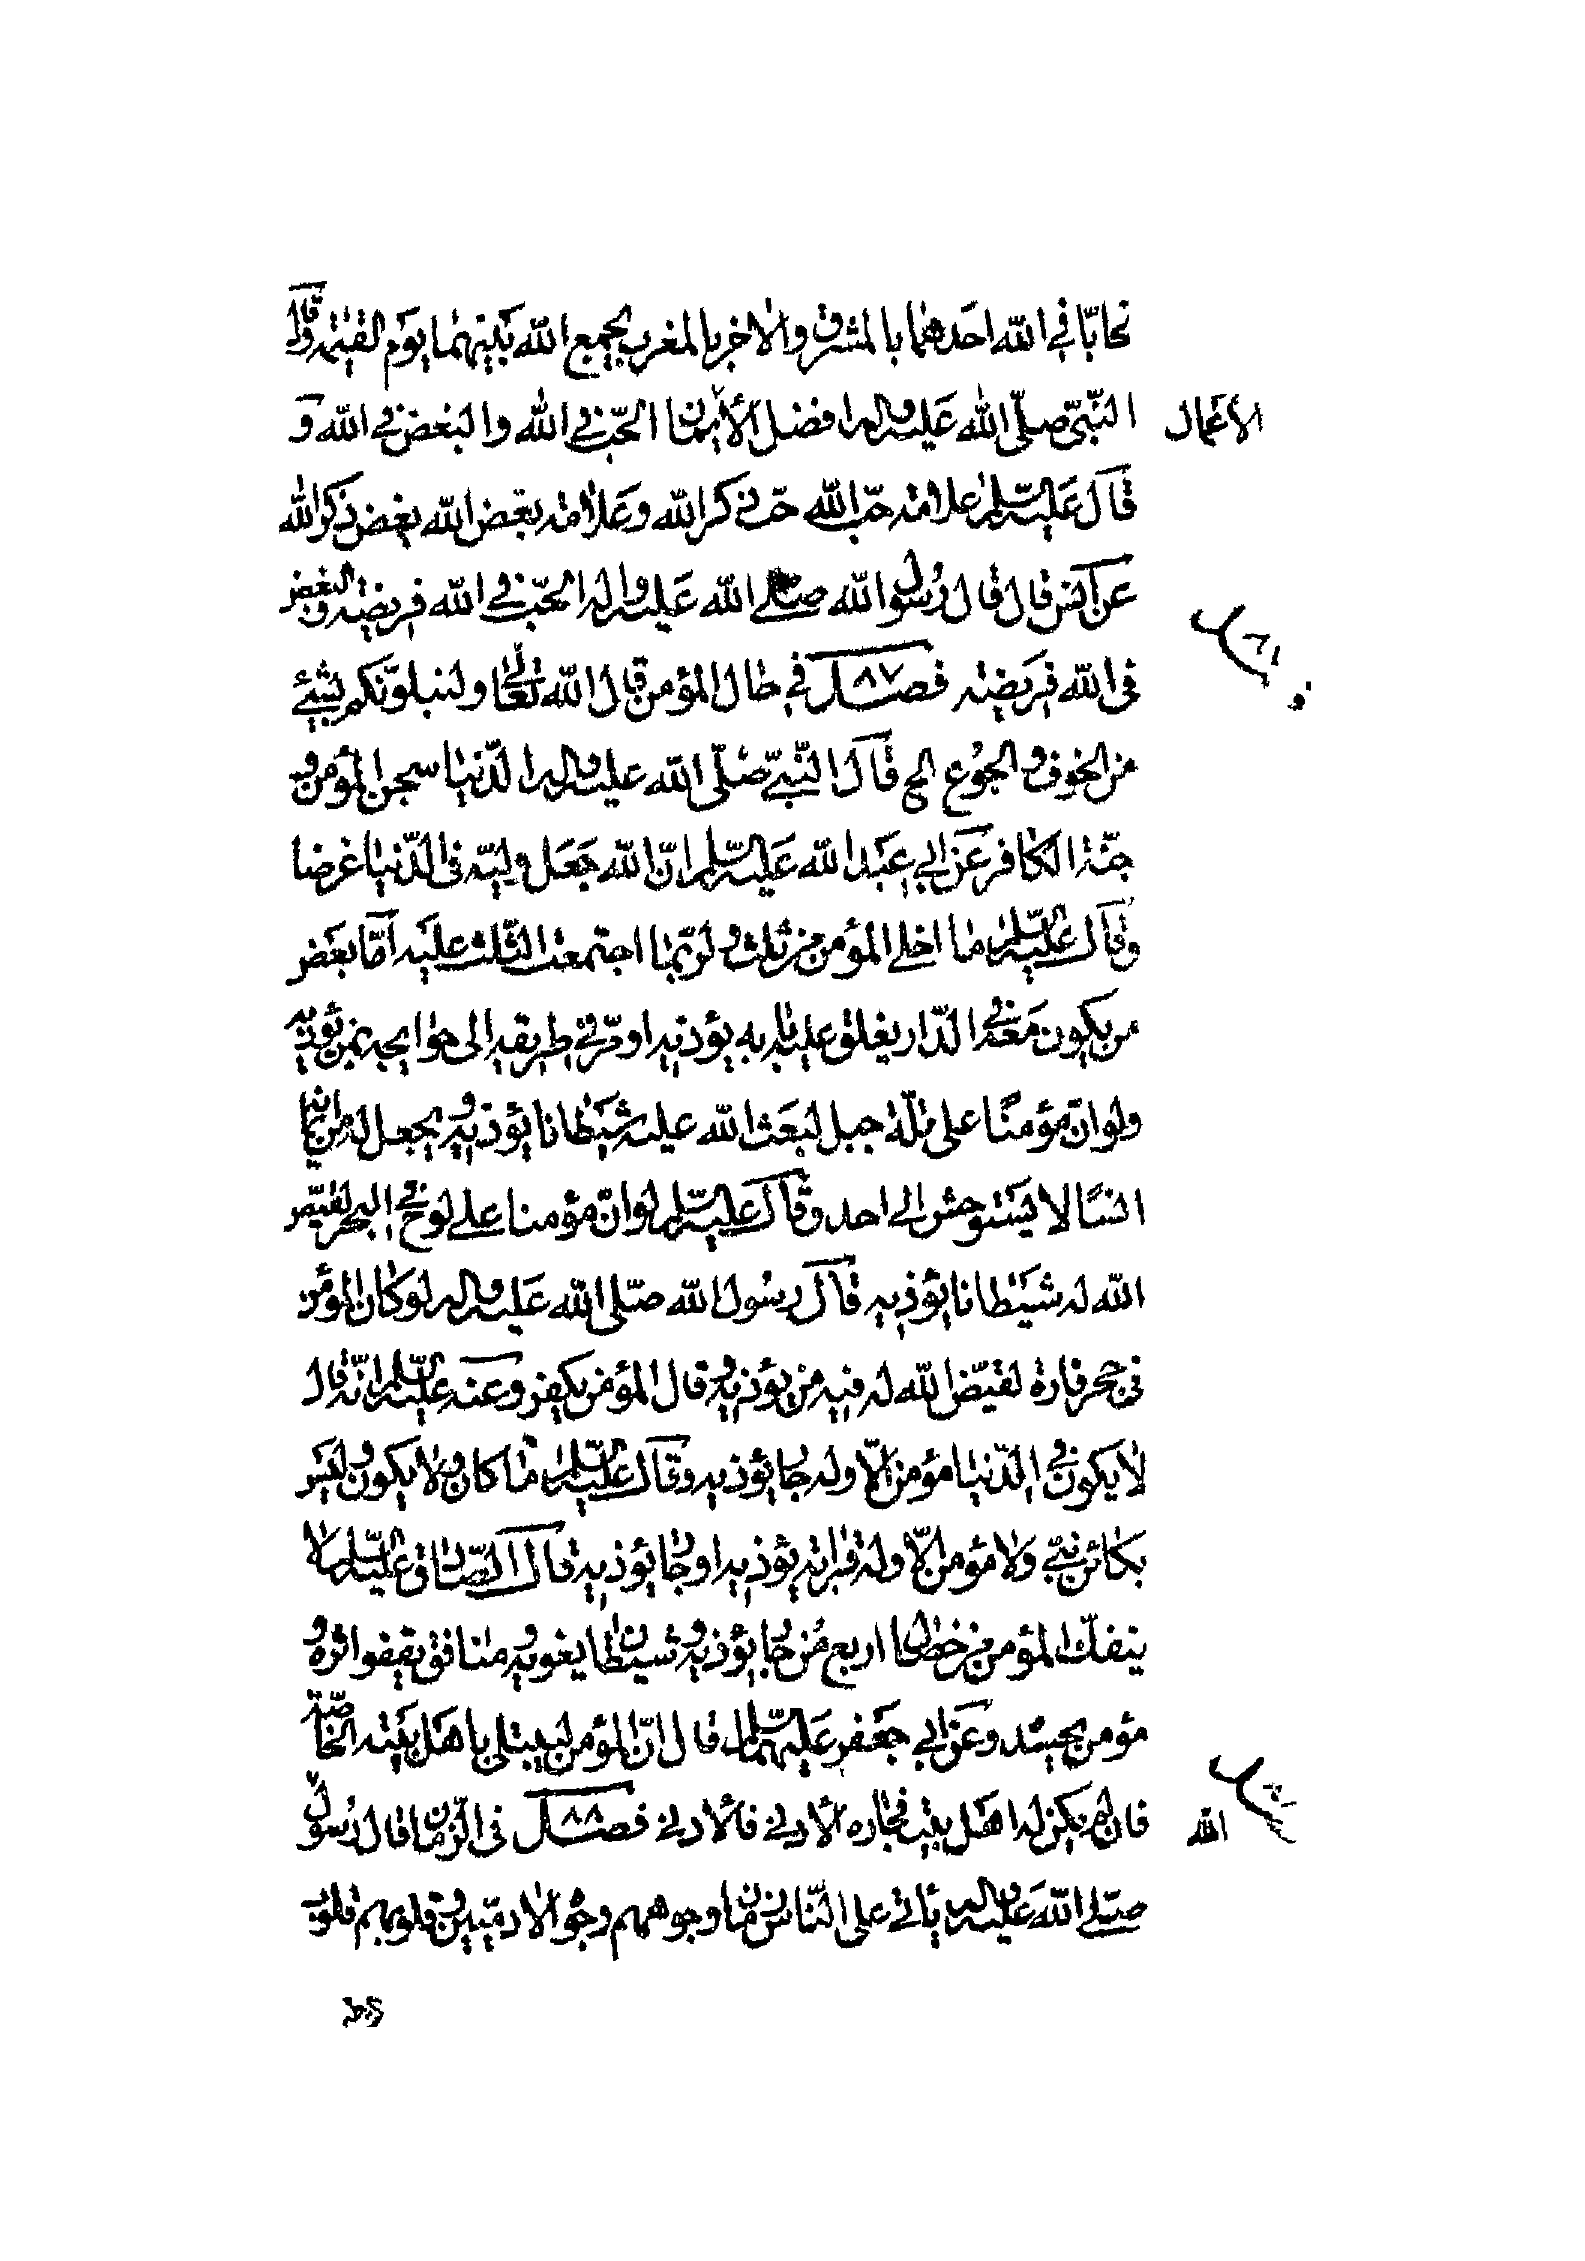 تحابّا في الله احدهما بالمشرق والاخر بالمغرب يجمع الله بينهما يوم القيٰمة وقال
النّبيّ صلّى الله عليه واله افضل الأيمان الحبّ في الله والبغض في الله و
الأعمال
قال عليه السّلم علامة حبّ الله حبّ ذكر الله وعلامة بغض الله بغض ذكر الله
عن انس قال قال رسول الله صلّى الله عليه واله الحبّ في الله فريضة والبغض
في الله فريضة فصل ٨٧ في حال المؤمن قال الله تعالى ولنبلونّكم بشيئ
من الخوف والجوع الخ قال النّبيّ صلّى الله عليه واله الدّنيا سجن المؤمن و
جنّة الكافر عن ابي عبد الله عليه السّلم انّ الله جعل وليّه في الدّنيا غرضا
وقال عليه السّلم ما اخلى المؤمن من ثلث ولربّما اجتمعت الثّلث عليه امّا بعض
من يكون معه في الدّار يغلق عليه بابه يؤذيه او مرّ في طريقه الى حوايجه من يؤذيه
ولو انّ مؤمنًا على قلّة جبل لبعث الله عليه شيطانا يؤذيه ويجعل له من ايمانه
انسًا لا يستوحش الى احد وقال عليه السّلم لو انّ مؤمنا على لوح في البحر لقيّض
الله له شيطانا يؤذيه قال رسول الله صلّى الله عليه واله لو كان المؤمن
في جحر فارة لقيّض الله له فيه من يؤذيه وقال المؤمن يكفر وعنه عليه السّلم انّه قال
لا يكون في الدّنيا مؤمن الّا وله جار يؤذيه وقال عليه السّلم ما كان ولا يكون وليس
بكائن نبيّ ولا مؤمن الّا وله قرابة يؤذيه او جار يؤذيه قال الصّادق عليه السّلم لا
ينفكّ المؤمن من خصال اربع من جار يؤذيه وشيطان يغويه ومنافق يقفو اثره و
مؤمن يحسده وعن ابي جعفر عليهما السّلم قال انّ المؤمن ليبتلى باهل بيته الخاصّة
فان لم يكن له اهل بيت فجاره الأدنى فالأدنى فصل ٨٨ في الزّمان قال رسول
الله
صلّى الله عليه واله يأتي على النّاس زمان وجوههم وجوه الادميّين وقلوبهم قلوب